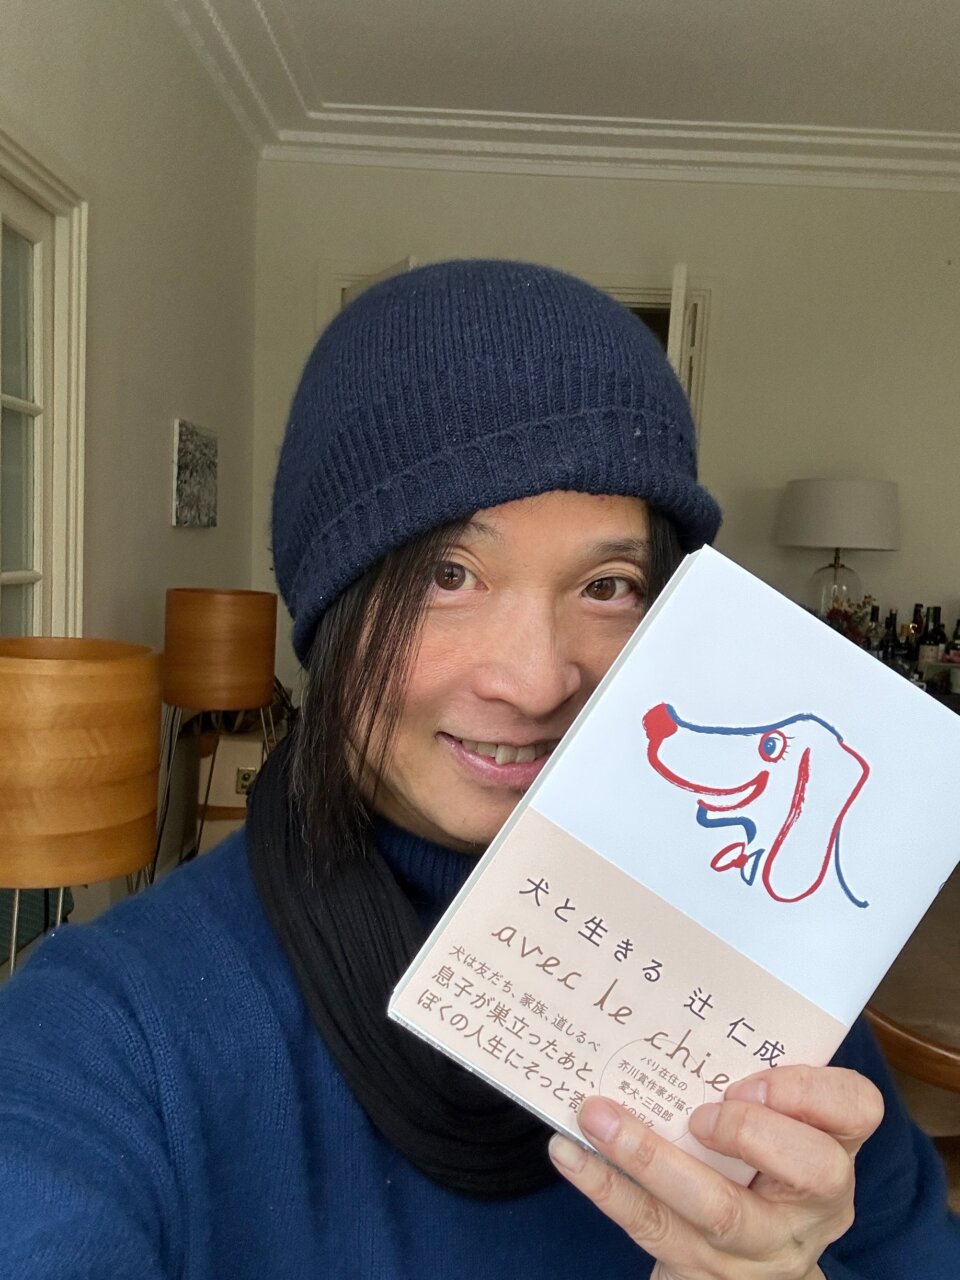 犬と生きる 辻 仁成
avec le chie
犬は友だち、家族、道しるべ
息子が巣立ったあと、
ぼくの人生にそっと寄
パリ在住の
芥川賞作家が描く
愛犬・三四郎
との日々